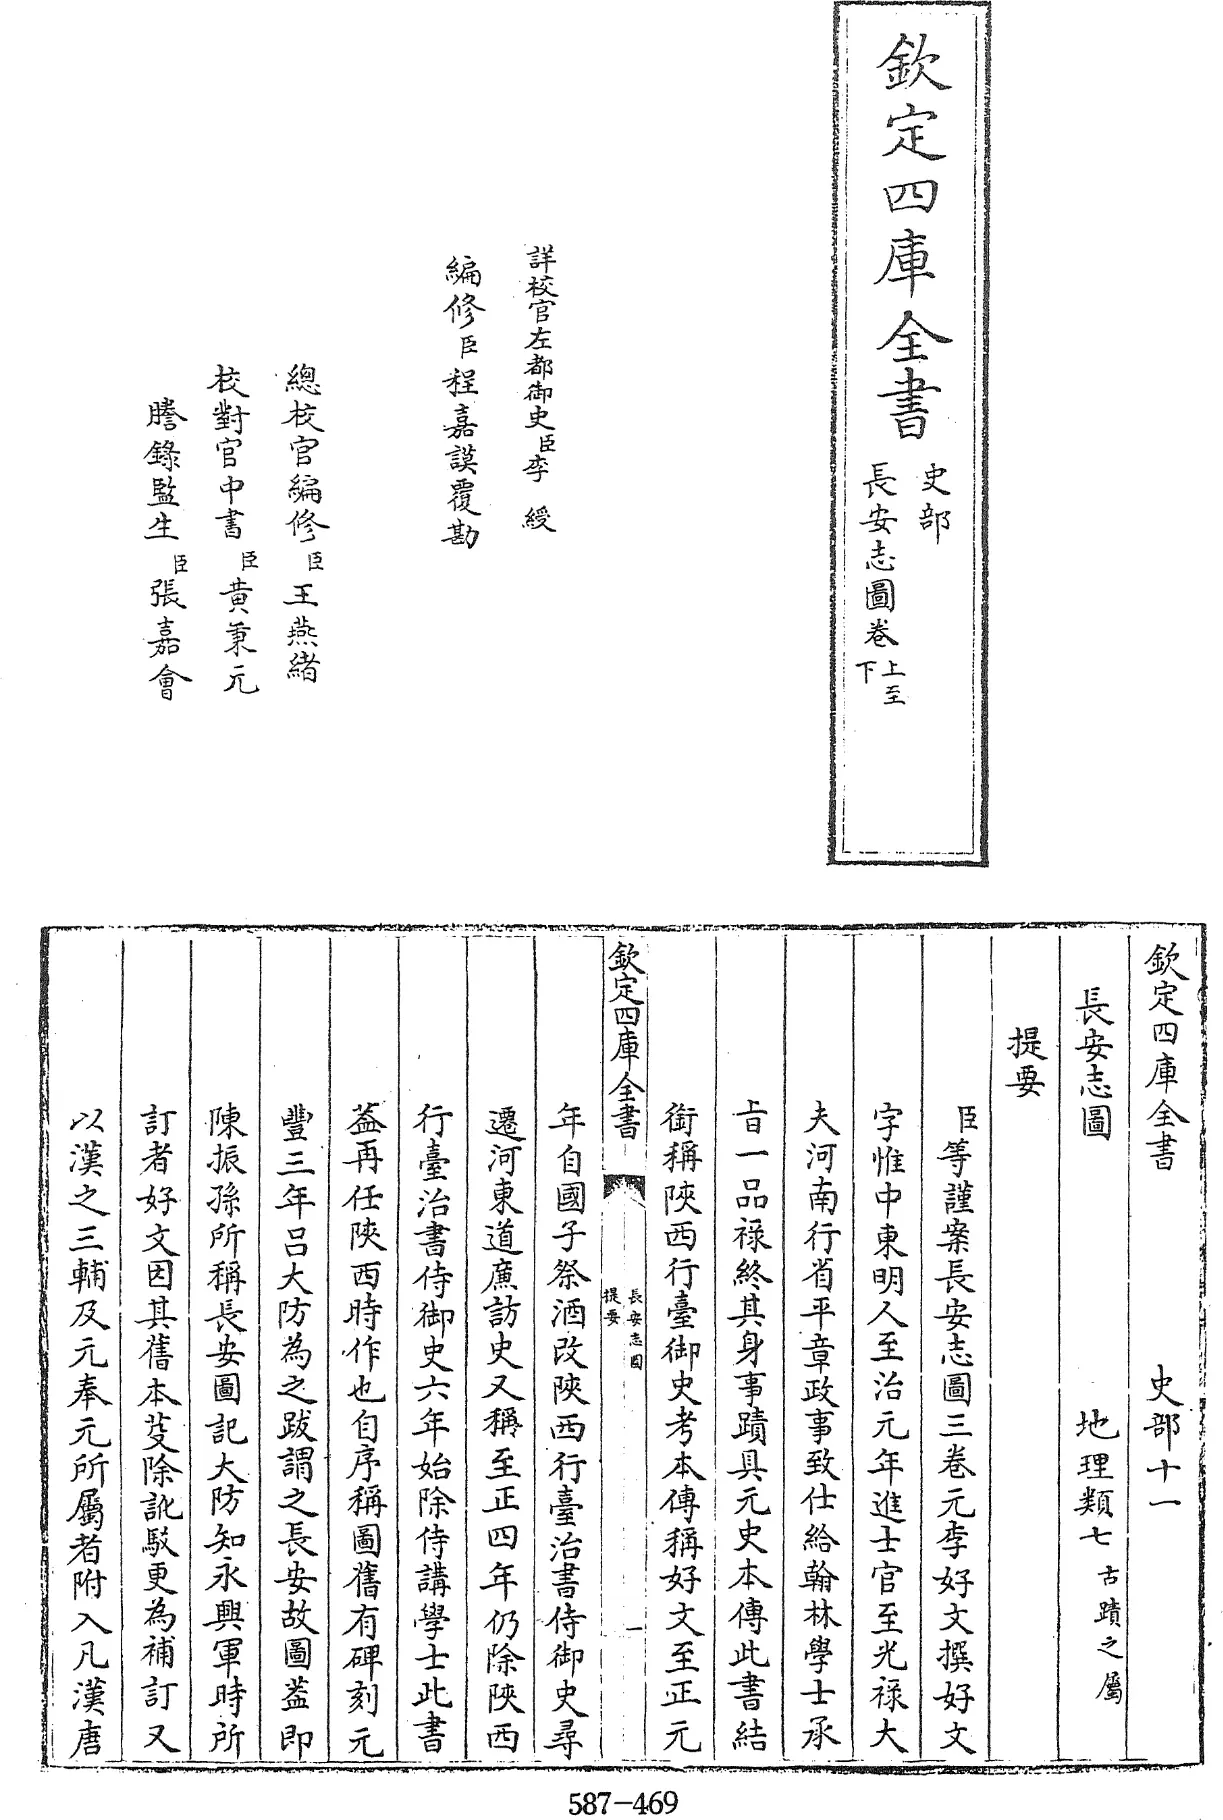 欽定四庫全書
史部
長安志圖卷上至下
詳校官左都御史臣李綬
編修臣程嘉謨覆勘
總校官編修臣王燕緒
校對官中書臣黄秉元
謄錄監生臣張嘉會
欽定四庫全書 史部十一
長安志圖 地理類七古蹟之屬
提要
臣等謹案長安志圖三卷元李好文撰好文
字惟中東明人至治元年進士官至光禄大
夫河南行省平章政事致仕給翰林學士承
旨一品禄終其身事蹟具元史本傳此書結
銜稱陜西行臺御史考本傳稱好文至正元
欽定四庫全書
長安志圖
提要
一
年自國子祭酒改陜西行臺治書侍御史尋
遷河東道廉訪史又稱至正四年仍除陜西
行臺治書侍御史六年始除侍講學士此書
葢再任陜西時作也自序稱圖舊有碑刻元
豐三年吕大防為之跋謂之長安故圖葢即
陳振孫所稱長安圖記大防知永興軍時所
訂者好文因其舊本芟除訛駁更為補訂又
以漢之三輔及元奉元所屬者附入凡漢唐
587-469